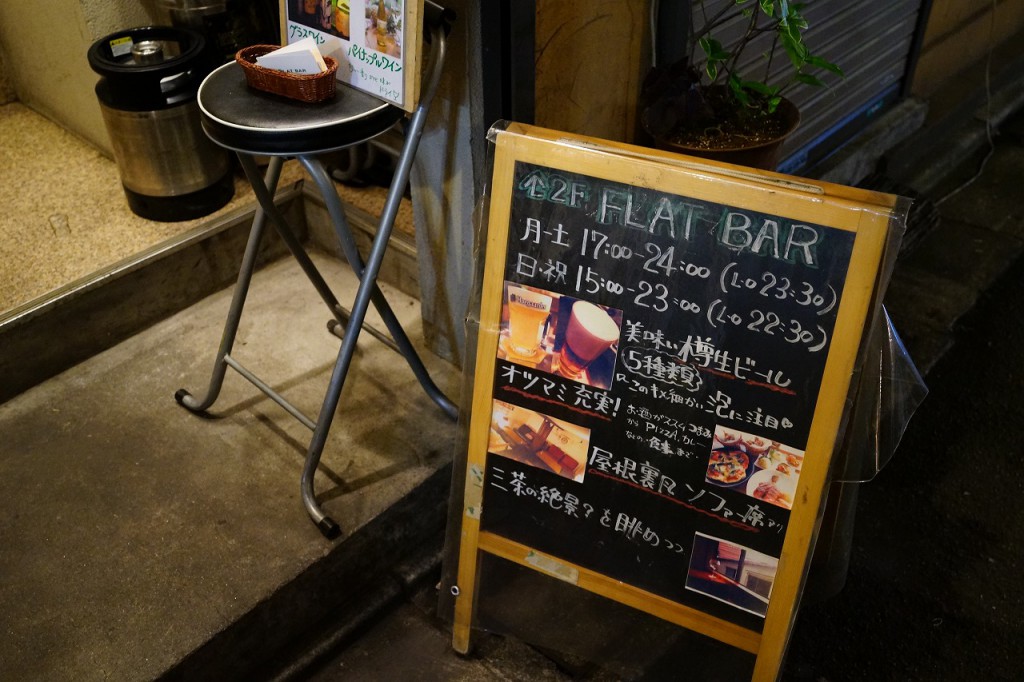 グラスワイン
パイナップルワイン
FLAT BAR
↑2F FLAT BAR
月-土 17:00-24:00 (L.o 23:30)
日・祝 15:00-23:00 (L.o 22:30)
美味い樽生ビール
5種類
このキメ細かい泡に注目♡
オツマミ充実!
お酒がススム
から PIZZA、カレー
などの食事まで
屋根裏風ソファー席あり
三茶の絶景?を眺めつつ